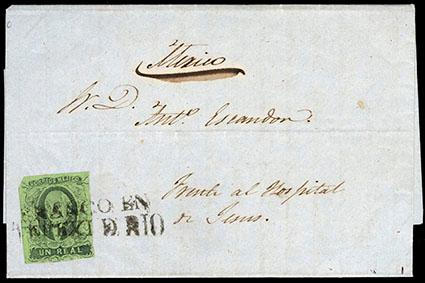 Mexico
S. D.
Antº Escandon.
Frente al Hospital
de Jesus.
CORREOS MEJICO
FRANCO EN
RIO
UN REAL